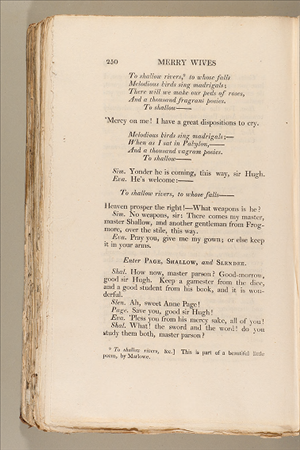 250 MERRY WIVES
To shallow rivers,* to whose falls
Melodious birds sing madrigals:
There will we make our peds of roses,
And a thousand fragrant posies.
To shallow——
'Mercy on me! I have a great dispositions to cry.
Melodious birds sing madrigals:—
When as I sat in Pabylon,——
And a thousand vagram posies.
To shallow——
Sim. Yonder he is coming, this way, sir Hugh.
Eva. He's welcome:——
To shallow rivers, to whose falls——
Heaven prosper the right!—What weapons is he?
Sim. No weapons, sir: There comes my master,
master Shallow, and another gentleman from Frog-
more, over the stile, this way.
Eva. Pray you, give me my gown; or else keep
it in your arms.
Enter PAGE, SHALLOW, and SLENDER.
Shal. How now, master parson? Good-morrow,
good sir Hugh. Keep a gamester from the dice,
and a good student from his book, and it is won-
derful.
Slen. Ah, sweet Anne Page!
Page. Save you, good sir Hugh!
Eva. 'Pless you from his mercy sake, all of you!
Shal. What! the sword and the word! do you
study them both, master parson?
* To shallow rivers, &c.] This is part of a beautiful little
poem, by Marlowe.